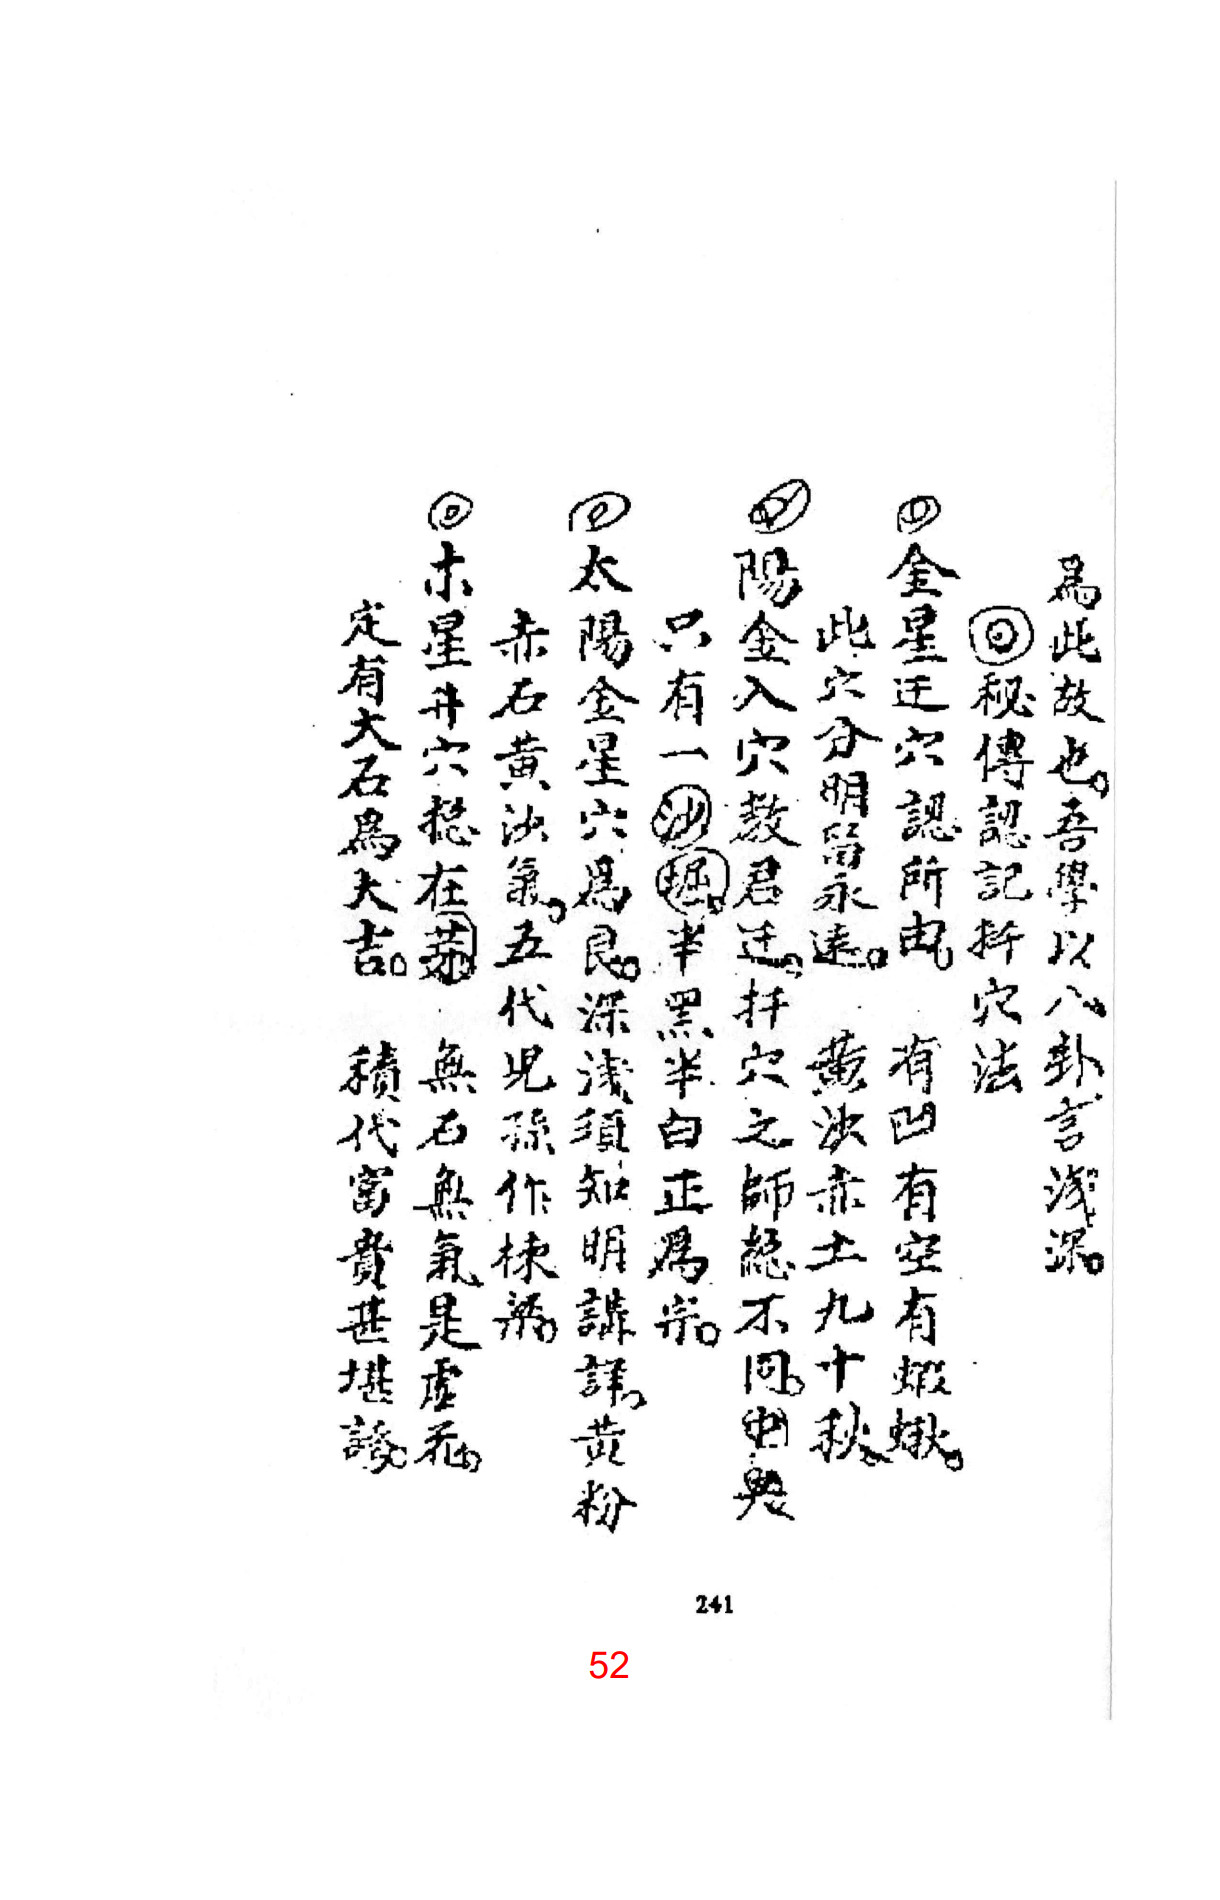 為此故也。吾學以八卦言淺深。
秘傳認記扦穴法
金星迁穴認所由 有凹有空有蝦蝦。
此穴分明留永遠。 黃沙赤土九十秋
陽金入穴教君迁。扦穴之師總不同。中與
只有一沙堀。半黑半白正為宗。
太陽金星穴為良。深淺須知明講詳。黃粉
赤石黃沙氣。五代児孫作棟梁。
木星井穴穩在芽 無石無氣是虛花。
定有大石為大吉。 積代富貴甚堪誇。
241
52